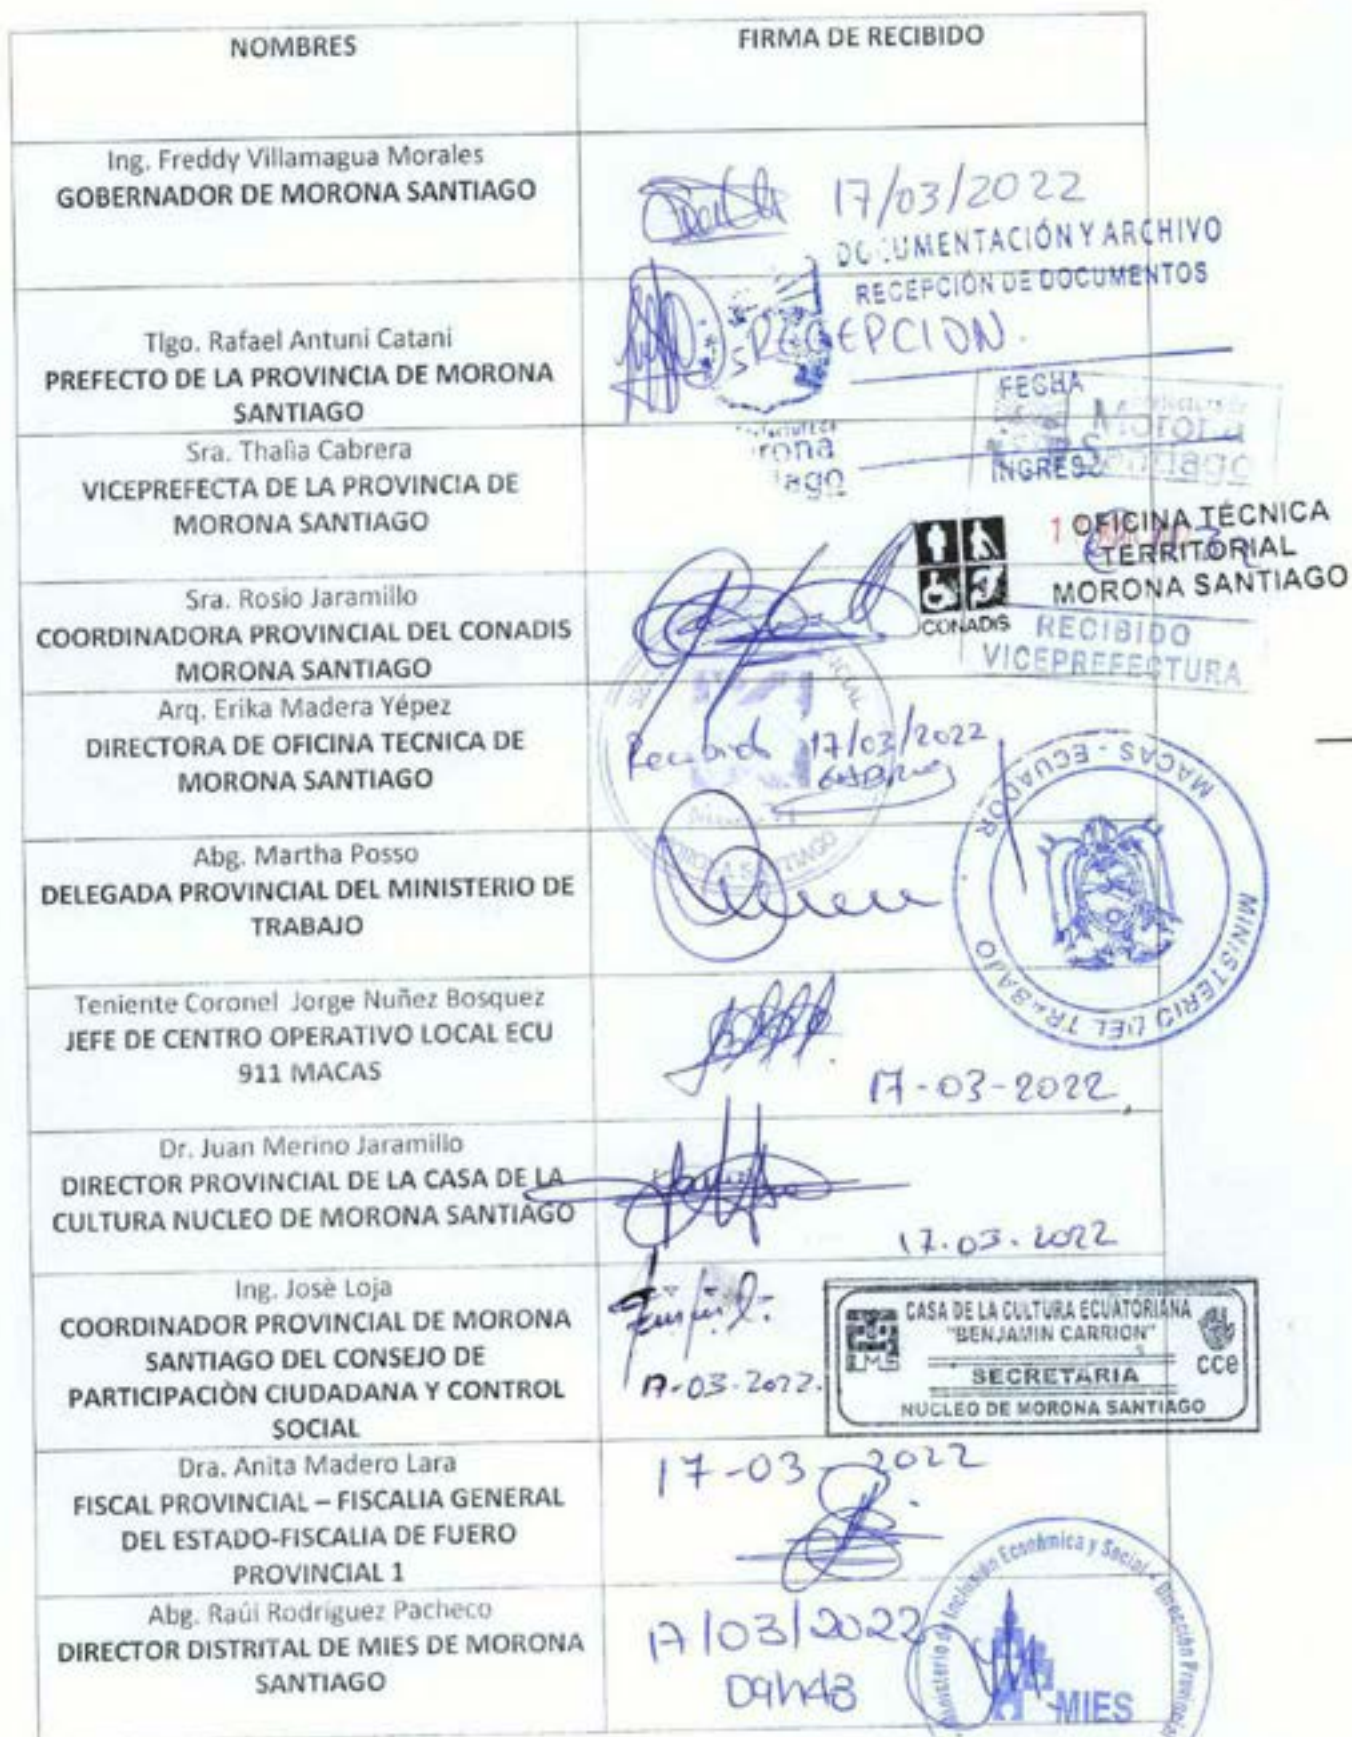 NOMBRES
FIRMA DE RECIBIDO
Ing. Freddy Villamagua Morales
GOBERNADOR DE MORONA SANTIAGO
17/03/2022
DOCUMENTACIÓN Y ARCHIVO
RECEPCIÓN DE DOCUMENTOS
Tlgo. Rafael Antuni Catani
PREFECTO DE LA PROVINCIA DE MORONA
SANTIAGO
RECEPCION.
FECHA
Morona
Santiago
INGRESO
Sra. Thalìa Cabrera
VICEPREFECTA DE LA PROVINCIA DE
MORONA SANTIAGO
rona
iago
OFICINA TÉCNICA
TERRITORIAL
MORONA SANTIAGO
Sra. Rosio Jaramillo
COORDINADORA PROVINCIAL DEL CONADIS
MORONA SANTIAGO
CONADIS
RECIBIDO
VICEPREFECTURA
Arq. Erika Madera Yépez
DIRECTORA DE OFICINA TECNICA DE
MORONA SANTIAGO
Recibido 17/03/2022
MORONA SANTIAGO
MACAS - ECUADOR
MINISTERIO DEL TRABAJO
Abg. Martha Posso
DELEGADA PROVINCIAL DEL MINISTERIO DE
TRABAJO
Teniente Coronel Jorge Nuñez Bosquez
JEFE DE CENTRO OPERATIVO LOCAL ECU
911 MACAS
17-03-2022
Dr. Juan Merino Jaramillo
DIRECTOR PROVINCIAL DE LA CASA DE LA
CULTURA NUCLEO DE MORONA SANTIAGO
17.03.2022
Ing. Josè Loja
COORDINADOR PROVINCIAL DE MORONA
SANTIAGO DEL CONSEJO DE
PARTICIPACIÒN CIUDADANA Y CONTROL
SOCIAL
17-03-2022.
CASA DE LA CULTURA ECUATORIANA
"BENJAMIN CARRION"
SECRETARIA
cce
NUCLEO DE MORONA SANTIAGO
Dra. Anita Madero Lara
FISCAL PROVINCIAL – FISCALIA GENERAL
DEL ESTADO-FISCALIA DE FUERO
PROVINCIAL 1
17-03-2022
Abg. Raúl Rodríguez Pacheco
DIRECTOR DISTRITAL DE MIES DE MORONA
SANTIAGO
17/03/2022
09h48
Ministerio de Inclusión Económica y Social - Dirección Provincial
MIES